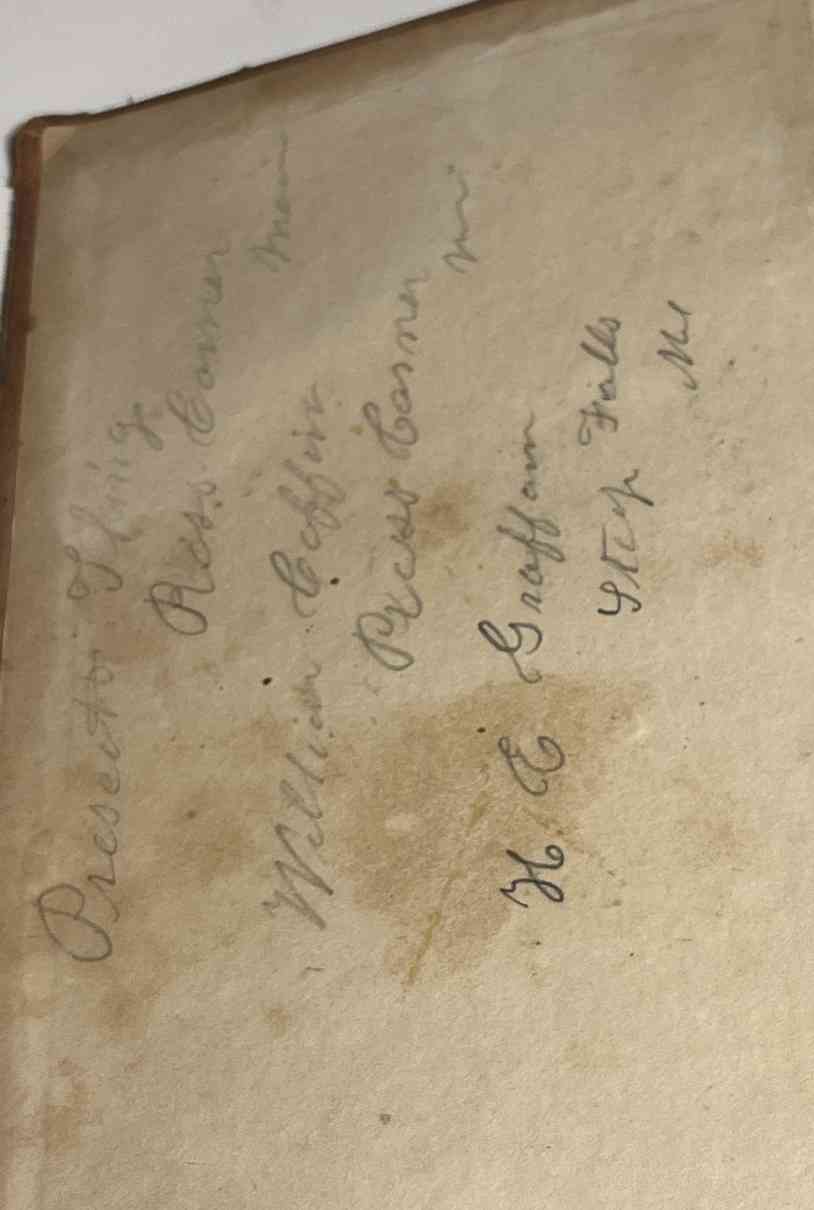 Prescott Fling
Ross Corner
Main
William Coffin
Ross Corner
H. E Graffam
Step Falls
Me